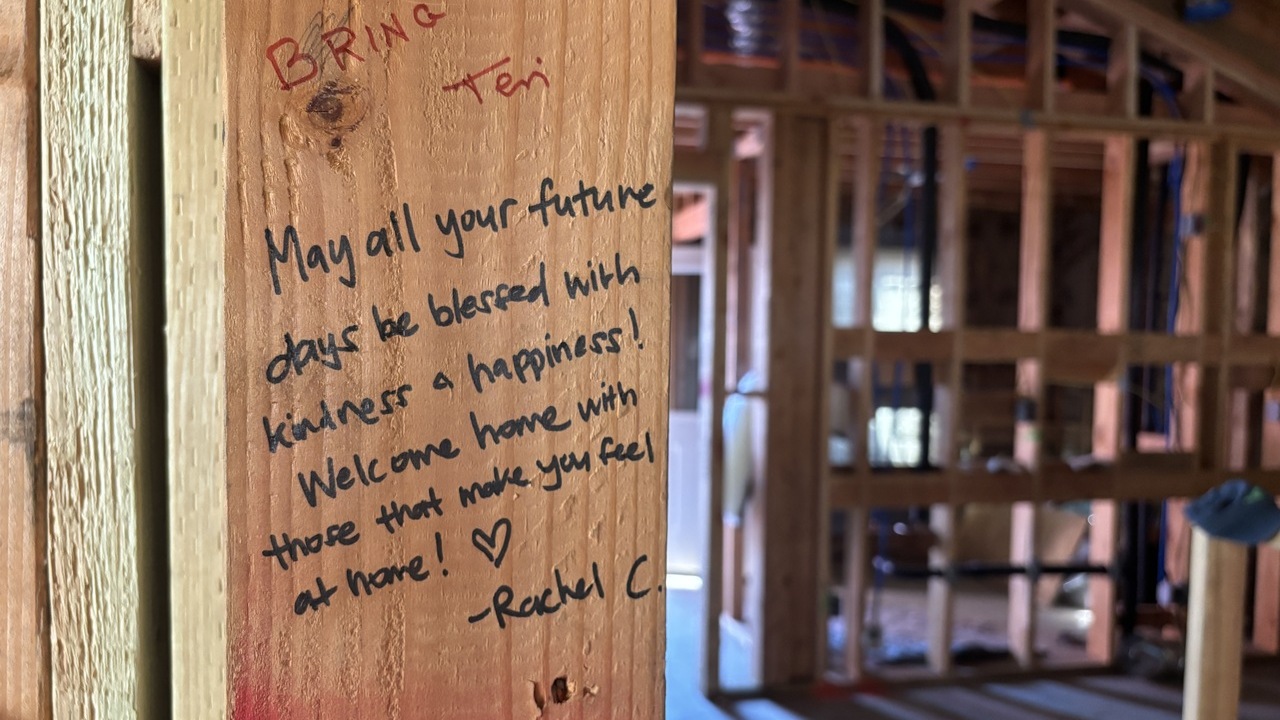 BRING
Teri
May all your future
days be blessed with
kindness a happiness!
Welcome home with
those that make you feel
at home! ♡
-Rachel C.